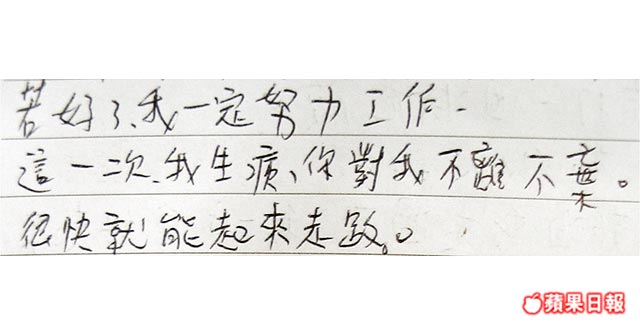 若好了、我一定努力工作.
這一次、我生病、你對我不離不棄。
很快就能起來走路。
蘋果日報